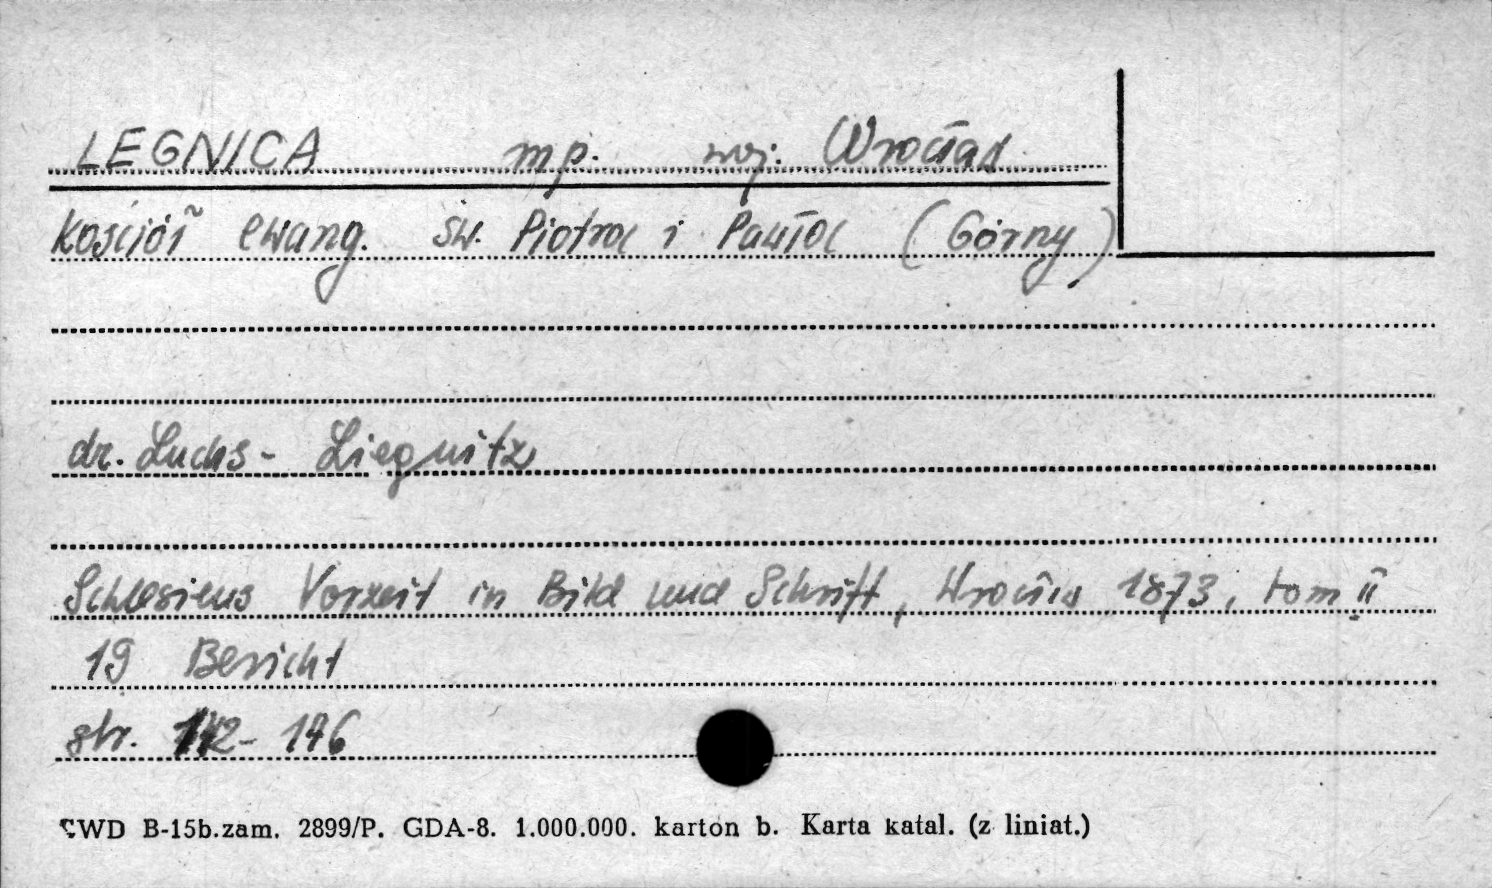 LEGNICA mp. woj. Wrocław
kościół ewang. św. Piotra i Pawła (Górny)
dr. Luchs - Liegnitz
Schlesiens Vorzeit in Bild und Schrift, Wrocław 1873, tom II
19 Bericht
str. 142- 146
CWD B-15b.zam. 2899/P. GDA-8. 1.000.000. karton b. Karta katal. (z liniat.)